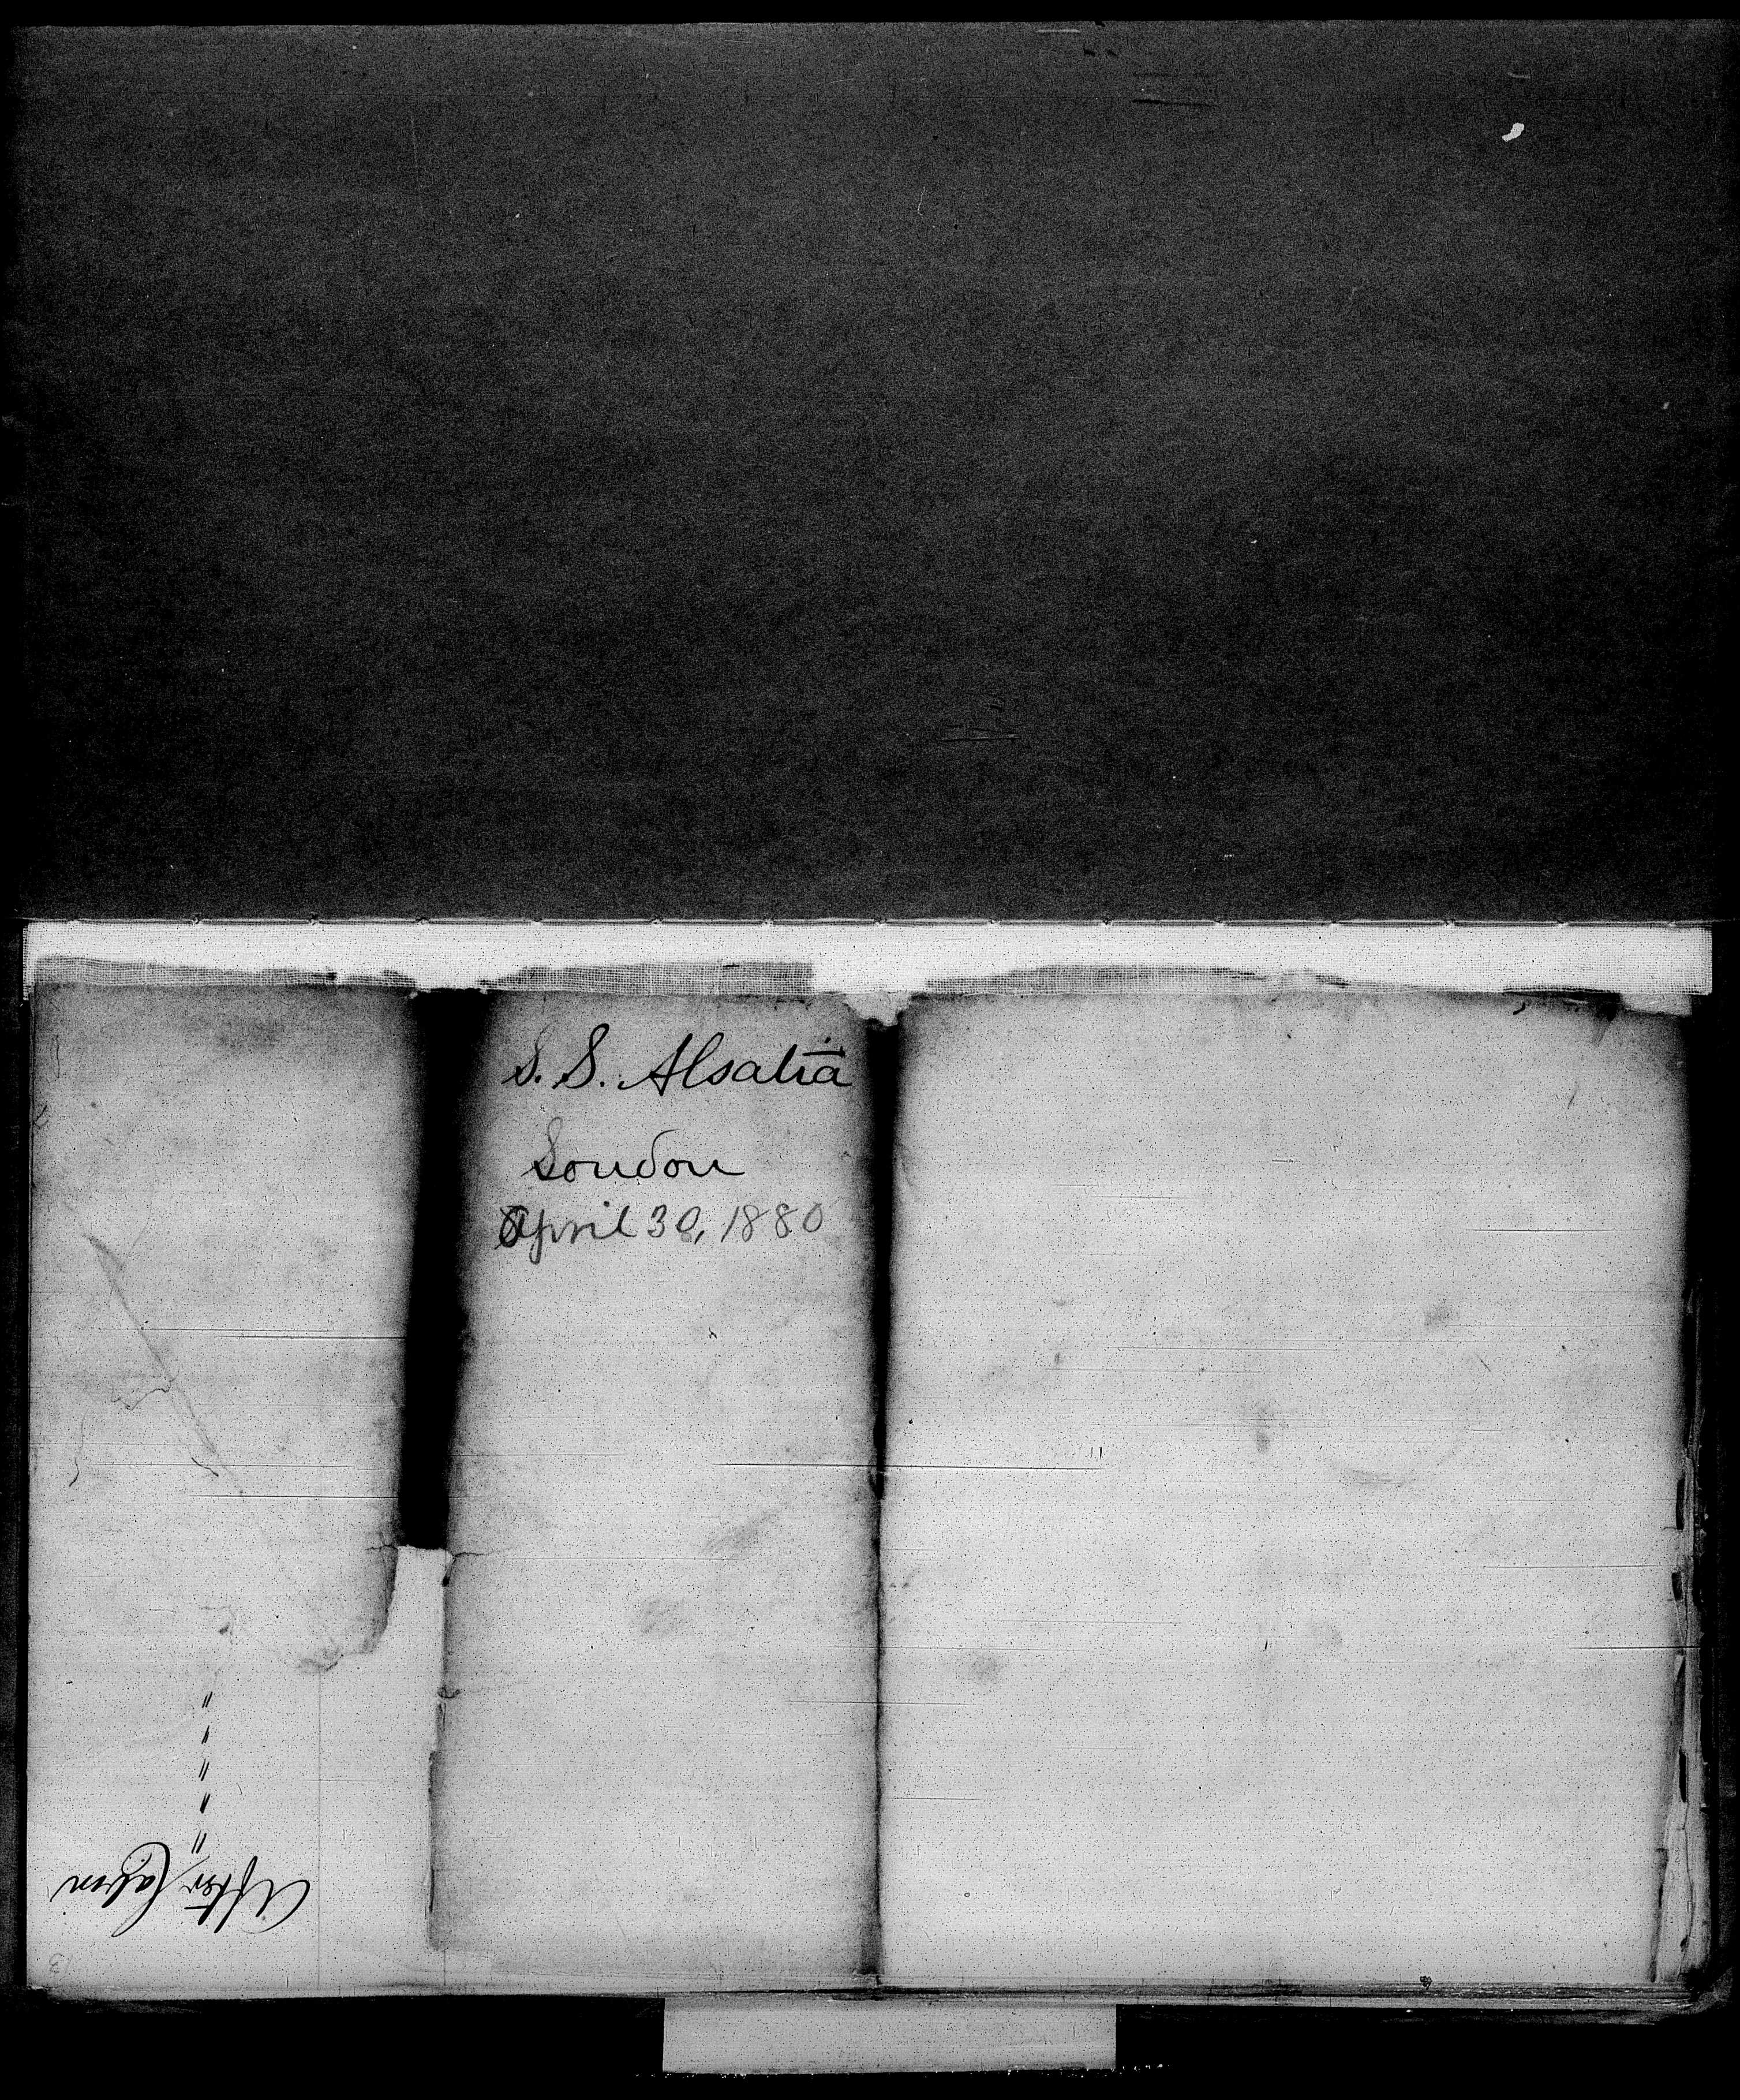 S. S. Alsatia
London
April 30, 1880
After Cabin
"
"
"
"
"